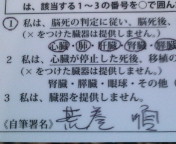 は、該当する1〜3の番号を○で囲ん
① 私は、脳死の判定に従い、脳死後、
(×をつけた臓器は提供しません。)
心臓・肺・肝臓・腎臓・
2 私は、心臓が停止した死後、移植の
(×をつけた臓器は提供しません。)
腎臓・膵臓・眼球・その他(
3 私は、臓器を提供しません。
《自筆署名》荒巻